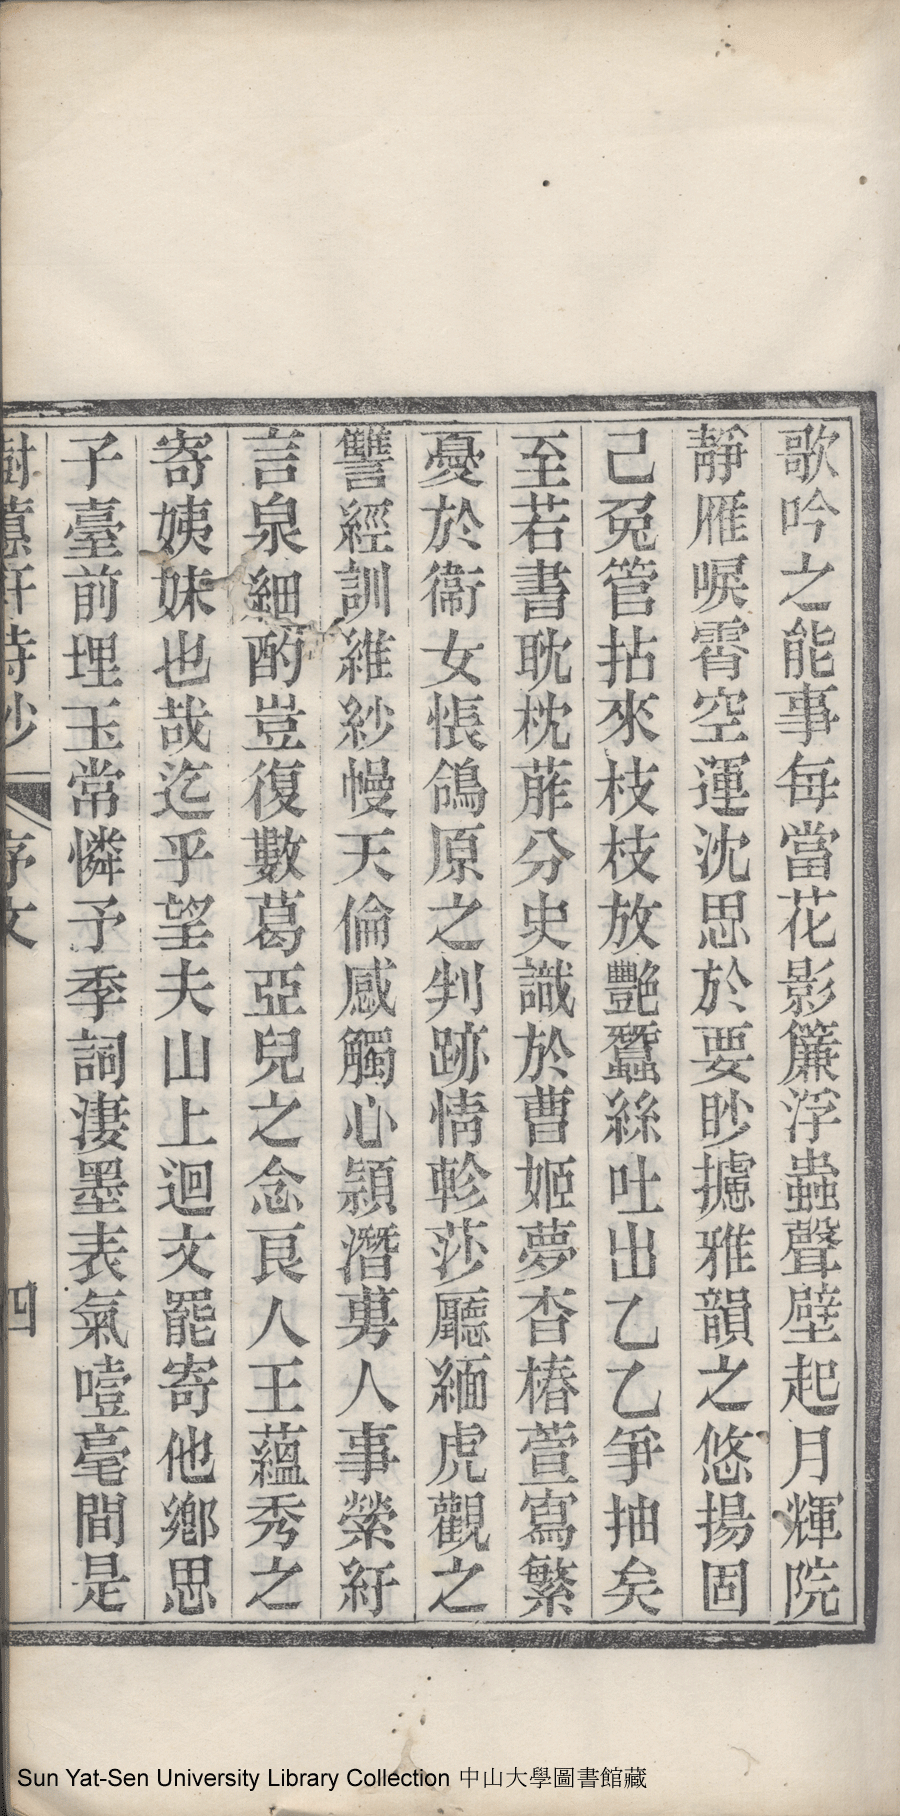 歌吟之能事每當花影簾浮蟲聲壁起月輝院
靜雁唳霄空運沈思於要眇攄雅韻之悠揚固
己兎管拈來枝枝放艷蠶絲吐出乙乙爭抽矣
至若書耽枕葄分史識於曹姬夢杳椿萱寫繁
憂於衞女悵鴒原之判跡情軫莎廳緬虎觀之
讐經訓維紗幔天倫感觸心穎潛旉人事縈紆
言泉細酌豈復數葛亞兒之念良人王蘊秀之
寄姨妹也哉迄乎望夫山上迴文罷寄他鄉思
子臺前埋玉常憐予季詞淒墨表氣噎毫間是
樹蕙軒詩鈔 序文 四
Sun Yat-Sen University Library Collection 中山大學圖書館藏